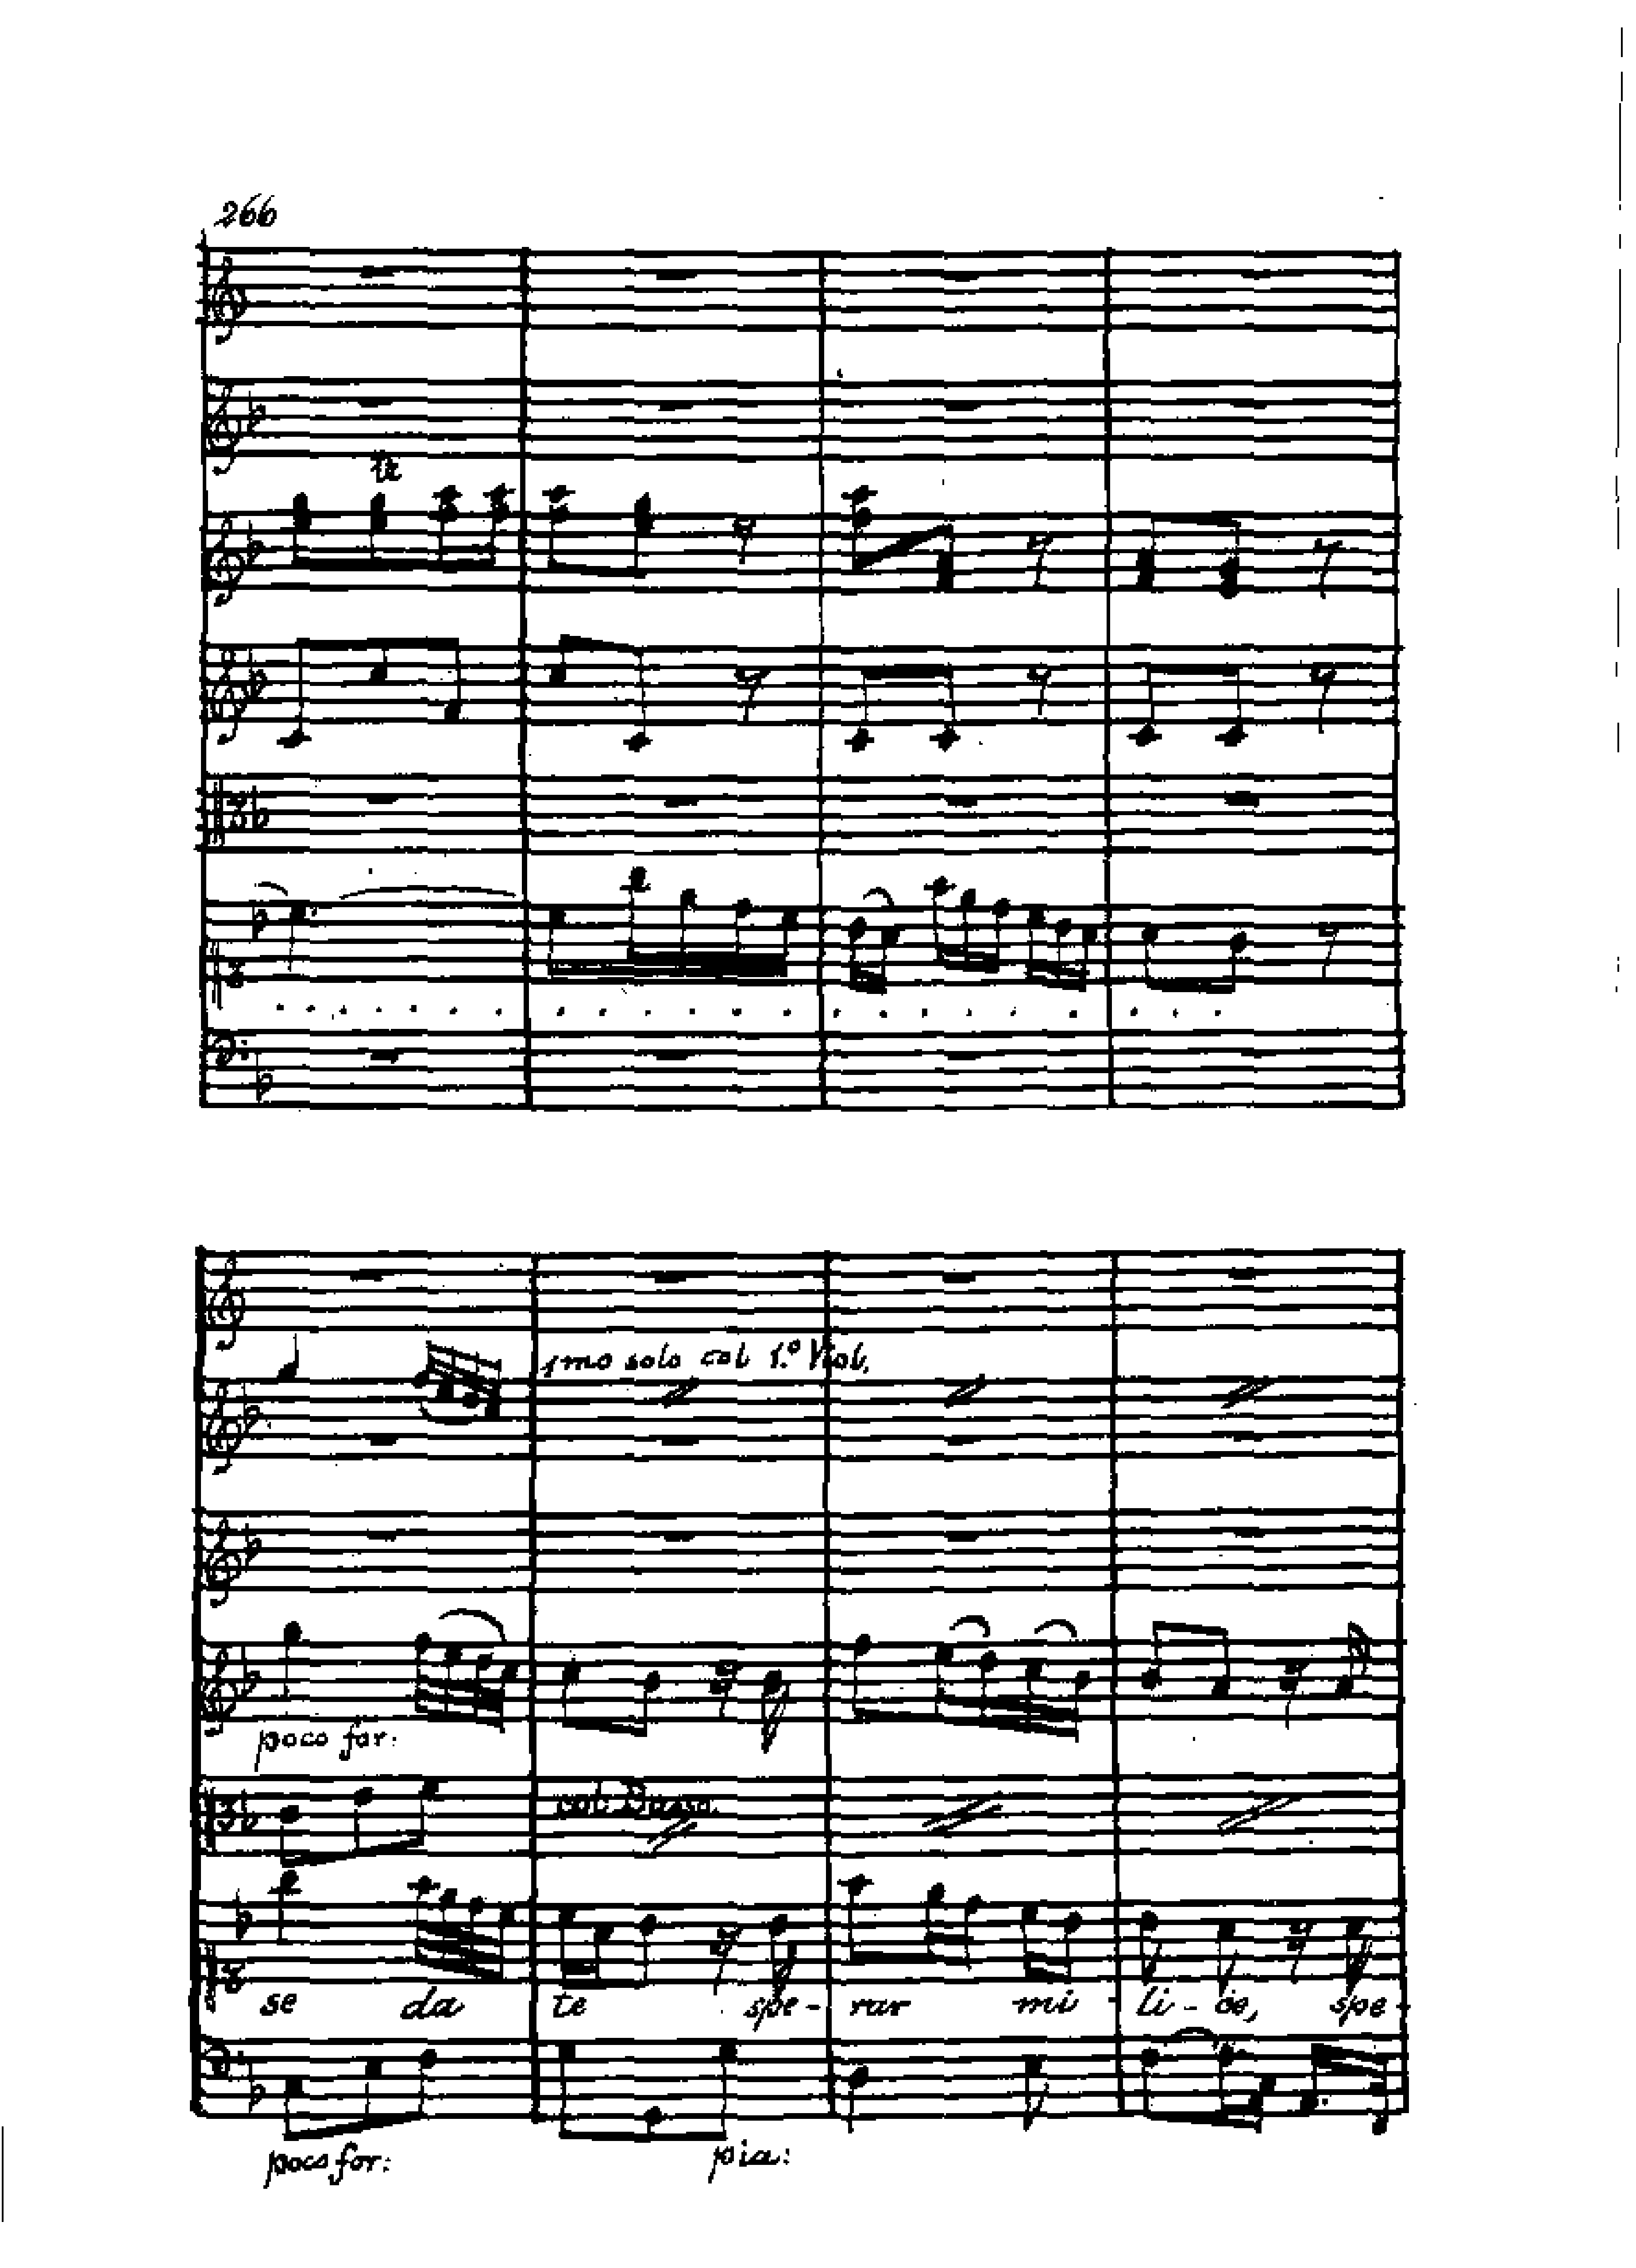 266
tr
1mo solo col 1.º Viol.
poco for:
col Basso.
se da te spe- rar mi li- ce, spe-
poco for: pia: